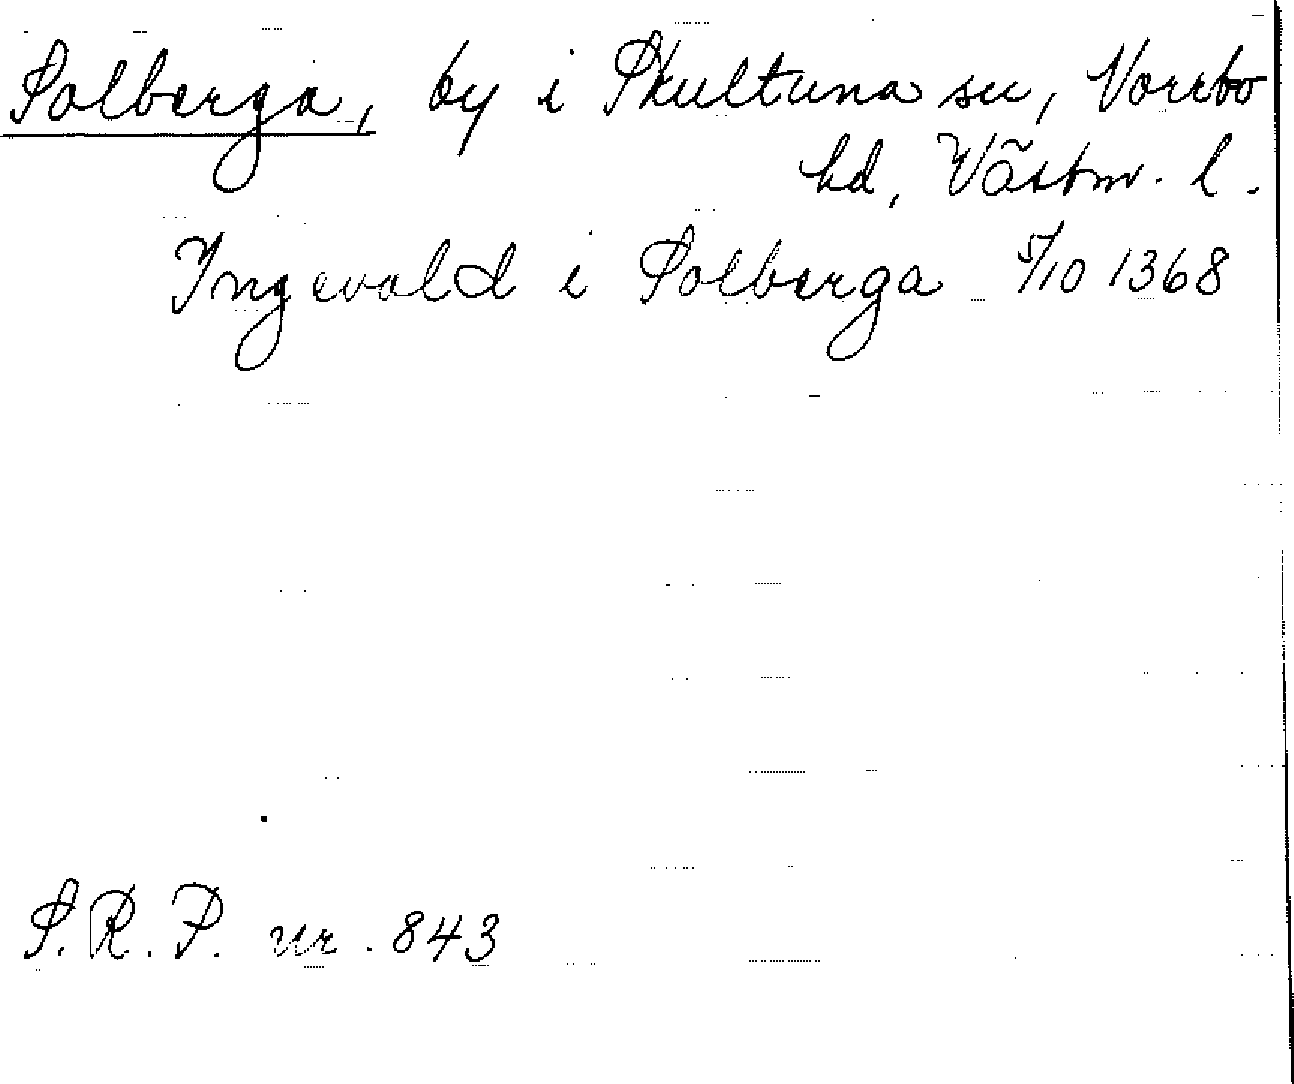 Solberga, by i Skultuna sn, Norrbo
hd, Västm. l.
Ingevald i Solberga 5/10 1368
S.R.P. nr. 843